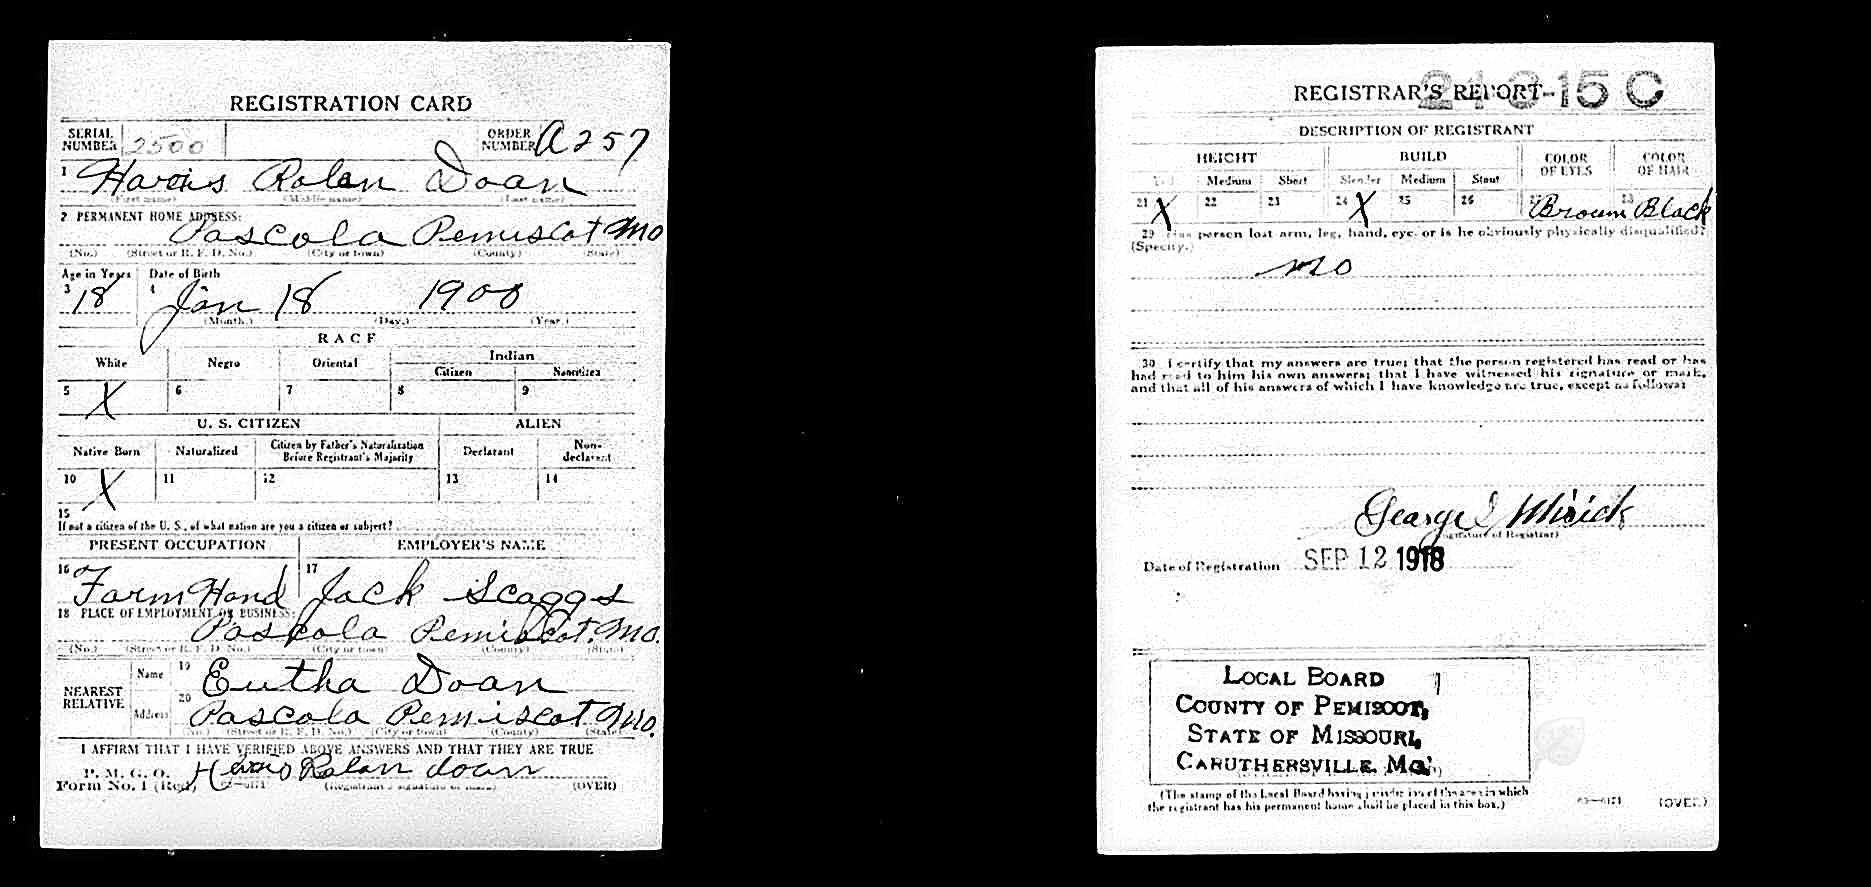 REGISTRATION CARD
SERIAL NUMBER 2500 ORDER NUMBER A257
1 Harris Rolan Doan
(First name) (Middle name) (Last name)
2 PERMANENT HOME ADDRESS:
Pascola Pemiscot Mo
(No.) (Street or R. F. D. No.) (City or town) (County) (State)
Age in Years Date of Birth
3 18 4 Jan 18 1900
(Month.) (Day.) (Year.)
RACE
White Negro Oriental Indian
Citizen Noncitizen
5 X 6 7 8 9
U. S. CITIZEN ALIEN
Native Born Naturalized Citizen by Father's Naturalization Before Registrant's Majority Declarant Non-declarant
10 X 11 12 13 14
15
If not a citizen of the U. S., of what nation are you a citizen or subject?
PRESENT OCCUPATION EMPLOYER'S NAME
16 Farm Hand 17 Jack Scaggs
18 PLACE OF EMPLOYMENT OR BUSINESS:
Pascola Pemiscot. Mo.
(No.) (Street or R. F. D. No.) (City or town) (County) (State)
NEAREST RELATIVE
Name 19 Eutha Doan
Address 20 Pascola Pemiscot. Mo.
(No.) (Street or R. F. D. No.) (City or town) (County) (State)
I AFFIRM THAT I HAVE VERIFIED ABOVE ANSWERS AND THAT THEY ARE TRUE
P. M. G. O.
Form No. 1 (Red) Rolan doan
(Registrant's signature or mark) (OVER)
REGISTRAR'S REPORT
15 C
DESCRIPTION OF REGISTRANT
HEIGHT BUILD COLOR OF EYES COLOR OF HAIR
Tall Medium Short Slender Medium Stout
21 X 22 23 24 X 25 26 27 Brown 28 Black
29 Has person lost arm, leg, hand, eye, or is he obviously physically disqualified?
(Specify.)
no
30 I certify that my answers are true; that the person registered has read or has
had read to him his own answers; that I have witnessed his signature or mark,
and that all of his answers of which I have knowledge are true, except as follows:
George Mirick
(Signature of Registrar)
Date of Registration SEP 12 1918
LOCAL BOARD
COUNTY OF PEMISCOT,
STATE OF MISSOURI,
CARUTHERSVILLE, MO.
(The stamp of the Local Board having jurisdiction of the area in which
the registrant has his permanent home shall be placed in this box.)
(OVER)